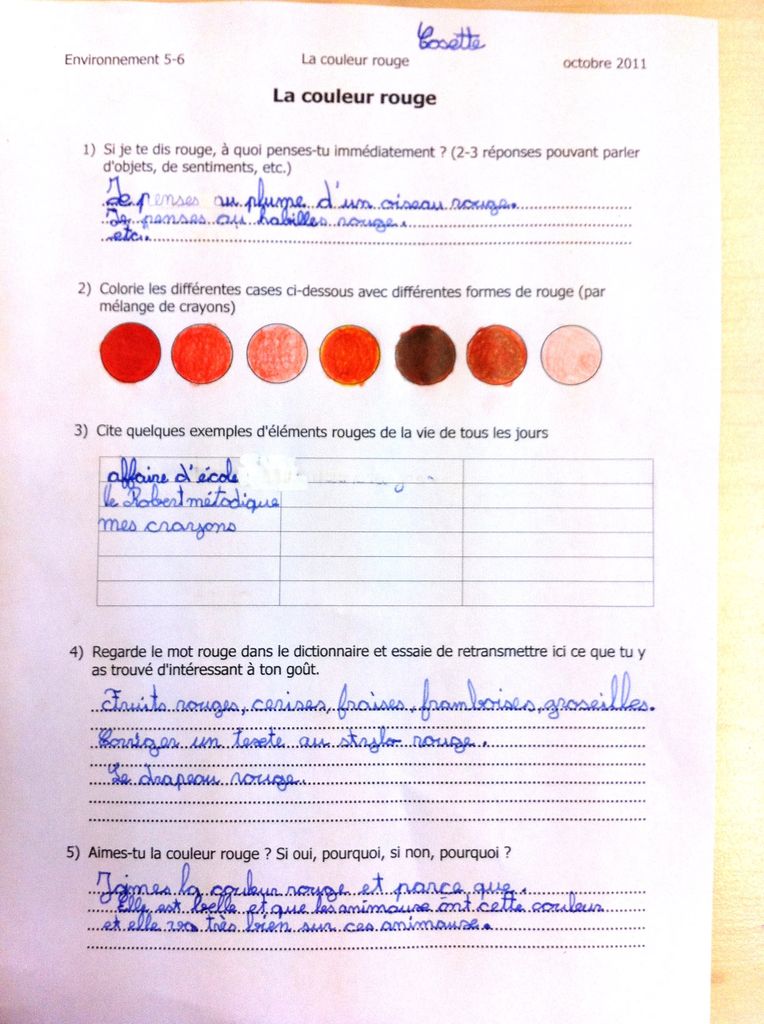 Cosette
Environnement 5-6 La couleur rouge octobre 2011
La couleur rouge
1) Si je te dis rouge, à quoi penses-tu immédiatement ? (2-3 réponses pouvant parler
d'objets, de sentiments, etc.)
Je penses au plume d'un oiseau rouge.
Je penses au habilles rouge.
etc.
2) Colorie les différentes cases ci-dessous avec différentes formes de rouge (par
mélange de crayons)
3) Cite quelques exemples d'éléments rouges de la vie de tous les jours
affaire d'école
le Robert métodique
mes crayons
4) Regarde le mot rouge dans le dictionnaire et essaie de retransmettre ici ce que tu y
as trouvé d'intéressant à ton goût.
Fruits rouges, cerises, fraises, framboises, groseilles.
Corriger un texte au stylo rouge.
Le drapeau rouge.
5) Aimes-tu la couleur rouge ? Si oui, pourquoi, si non, pourquoi ?
J'aimes la couleur rouge et parce que.
Elle est belle et que les animause ont cette couleur
et elle va très bien sur ces animause.